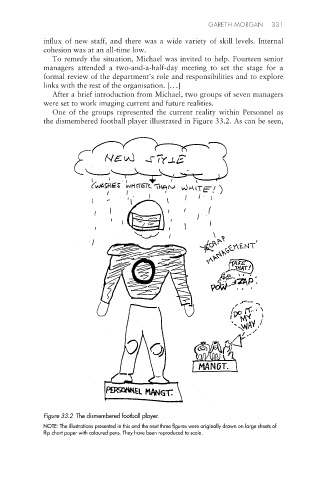 GARETH MORGAN 331
influx of new staff, and there was a wide variety of skill levels. Internal
cohesion was at an all-time low.
To remedy the situation, Michael was invited to help. Fourteen senior
managers attended a two-and-a-half-day meeting to set the stage for a
formal review of the department's role and responsibilities and to explore
links with the rest of the organisation. [...]
After a brief introduction from Michael, two groups of seven managers
were set to work imaging current and future realities.
One of the groups represented the current reality within Personnel as
the dismembered football player illustrated in Figure 33.2. As can be seen,
NEW STYLE
(WASHES WHITER THAN WHITE!)
'CRAP
MANAGEMENT'
TAKE
THAT!
POW ZAP
DO IT
MY
WAY
MANGT.
PERSONNEL MANGT.
Figure 33.2 The dismembered football player.
NOTE: The illustrations presented in this and the next three figures were originally drawn on large sheets of
flip chart paper with coloured pens. They have been reproduced to scale.